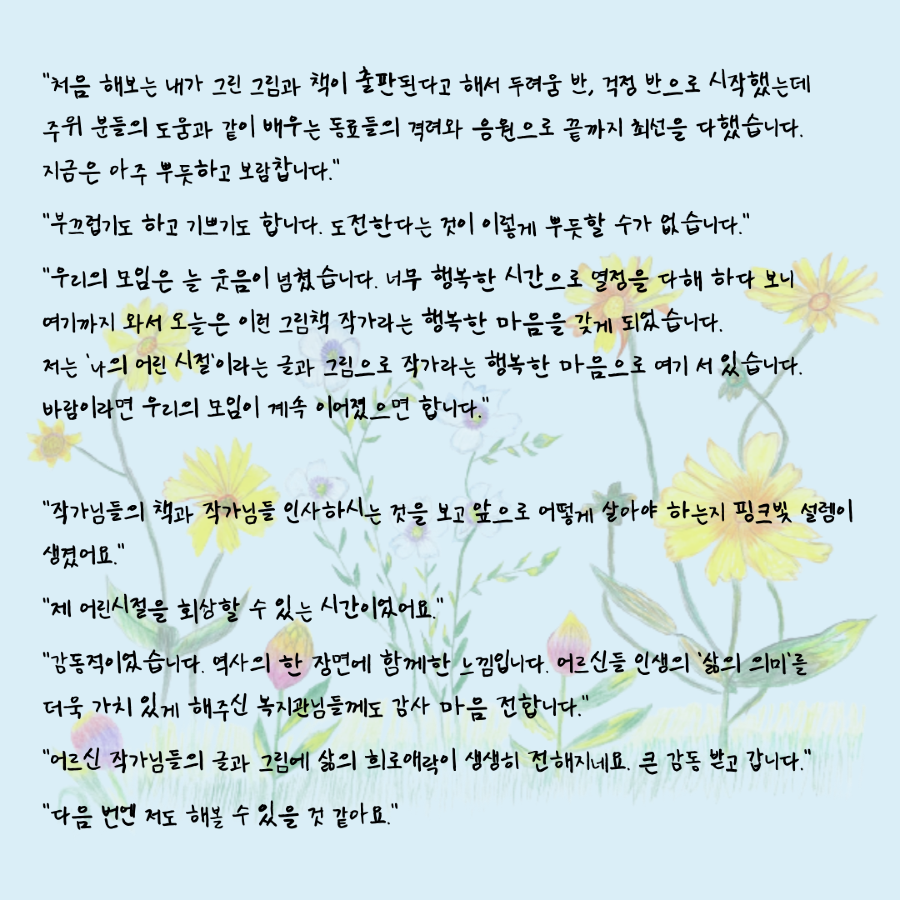 "처음 해보는 내가 그린 그림과 책이 출판된다고 해서 두려움 반, 걱정 반으로 시작했는데
주위 분들의 도움과 같이 배우는 동료들의 격려와 응원으로 끝까지 최선을 다했습니다.
지금은 아주 뿌듯하고 보람찹니다."
"부끄럽기도 하고 기쁘기도 합니다. 도전한다는 것이 이렇게 뿌듯할 수가 없습니다."
"우리의 모임은 늘 웃음이 넘쳤습니다. 너무 행복한 시간으로 열정을 다해 하다 보니
여기까지 와서 오늘은 이런 그림책 작가라는 행복한 마음을 갖게 되었습니다.
저는 '나의 어린 시절'이라는 글과 그림으로 작가라는 행복한 마음으로 여기 서 있습니다.
바람이라면 우리의 모임이 계속 이어졌으면 합니다."
"작가님들의 책과 작가님들 인사하시는 것을 보고 앞으로 어떻게 살아야 하는지 핑크빛 설렘이
생겼어요."
"제 어린시절을 회상할 수 있는 시간이었어요."
"감동적이었습니다. 역사의 한 장면에 함께한 느낌입니다. 어르신들 인생의 '삶의 의미'를
더욱 가치 있게 해주신 복지관님들께도 감사 마음 전합니다."
"어르신 작가님들의 글과 그림에 삶의 희로애락이 생생히 전해지네요. 큰 감동 받고 갑니다."
"다음 번엔 저도 해볼 수 있을 것 같아요."